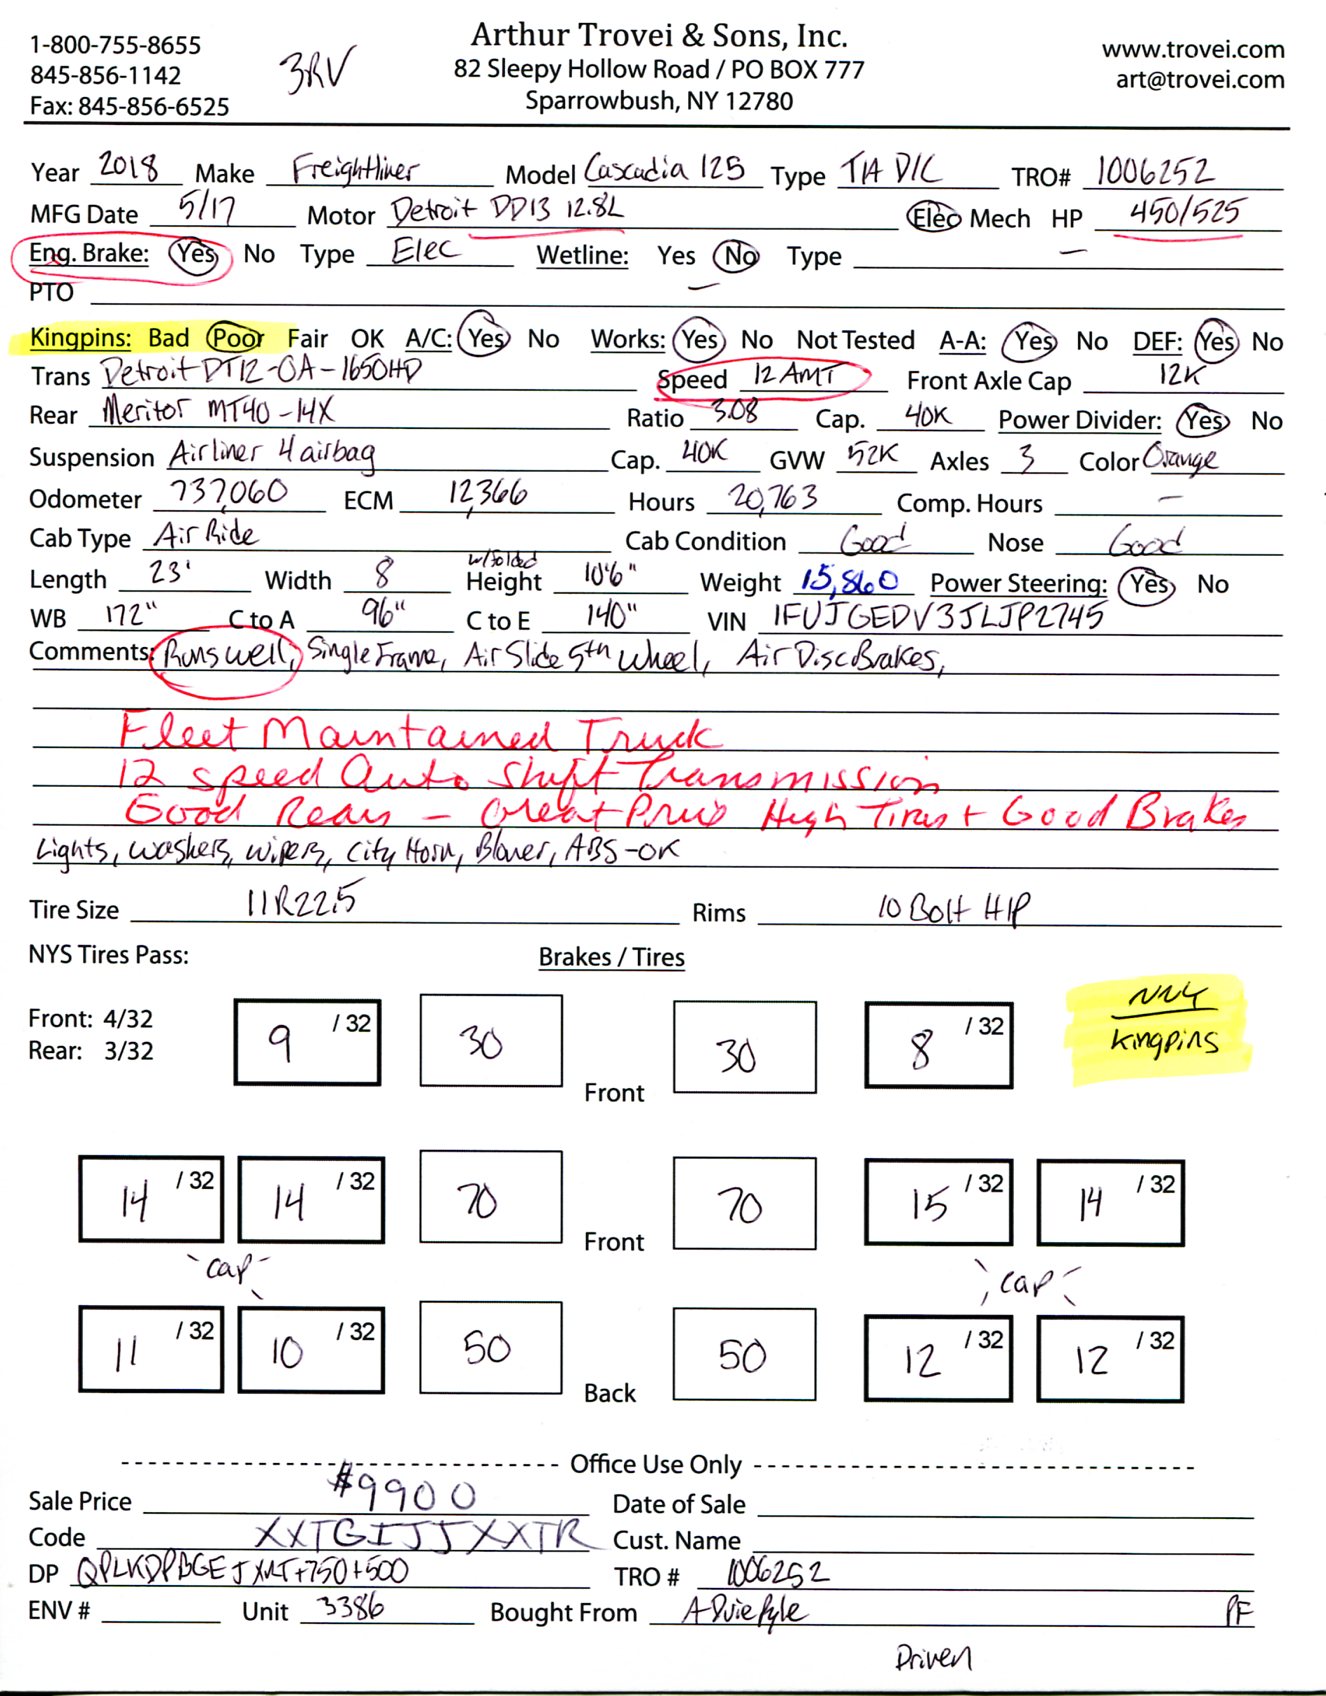 1-800-755-8655
845-856-1142
Fax: 845-856-6525
3RV
Arthur Trovei & Sons, Inc.
82 Sleepy Hollow Road / PO BOX 777
Sparrowbush, NY 12780
www.trovei.com
art@trovei.com
Year 2018 Make Freightliner Model Cascadia 125 Type T/A D/C TRO# 1006252
MFG Date 5/17 Motor Detroit DD13 12.8L Elec Mech HP 450/525
Eng. Brake: Yes No Type Elec Wetline: Yes No Type —
PTO —
Kingpins: Bad Poor Fair OK A/C: Yes No Works: Yes No Not Tested A-A: Yes No DEF: Yes No
Trans Detroit DT12-OA-1650HD Speed 12 AMT Front Axle Cap 12K
Rear Meritor MT40-14X Ratio 3.08 Cap. 40K Power Divider: Yes No
Suspension Airliner 4 airbag Cap. 40K GVW 52K Axles 3 Color Orange
Odometer 737,060 ECM 12,366 Hours 20,763 Comp. Hours —
Cab Type Air Ride Cab Condition Good Nose Good
Length 23' Width 8 w/folded Height 10'6" Weight 15,860 Power Steering: Yes No
WB 172" C to A 96" C to E 140" VIN 1FUJGEDV3JLJP2745
Comments: Runs well, Single Frame, Air Slide 5th Wheel, Air Disc Brakes,
Fleet Maintained Truck
12 speed Auto Shift Transmission
Good Rears - Great Price High Tires + Good Brakes
Lights, washers, wipers, City Horn, Blower, ABS-OK
Tire Size 11R22.5 Rims 10 Bolt H/P
NYS Tires Pass: Brakes / Tires
Front: 4/32
Rear: 3/32
9 /32 30 Front 30 8 /32
NNY
Kingpins
14 /32 14 /32 70 Front 70 15 /32 14 /32
cap cap
11 /32 10 /32 50 Back 50 12 /32 12 /32
Office Use Only
Sale Price $9900 Date of Sale
Code XXTGIJJXXTR Cust. Name
DP TRO # 1006252
ENV # Unit 3386 Bought From A-Duie Pyle PF
Driven